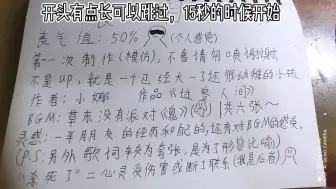 开头有点长可以跳过，15秒的时候开始
丧气值：50%（个人感觉）
第一次制作（模仿），不喜请勿喷谢谢，
不是UP，就是一个已经大一了还很幼稚的小孩
作者：小娜 作品《过客人间》
BGM：草东没有派对《鬼》 共六张～
灵感：一半朋友的经历和配的，还有对BGM的感受，
（P.S：另外歌词较为夸张，是为了形象比喻）
“杀死了”＝心灵受伤害或断了联系（我是后者）